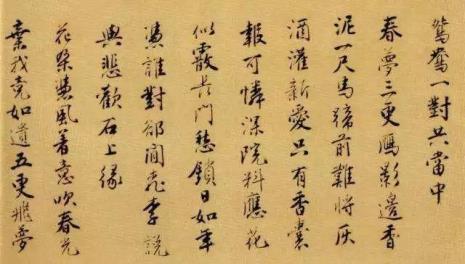 鴛鴦一對共當中
春夢三更鴈影邊香
泥一尺馬蹄前難將灰
酒灌新愛只有香囊
報可憐深院料應花
似霰長門愁鎖日如年
憑誰對卻閒李說
與悲歡石上緣
花朵憑風著意吹春光
棄我竟如遺五更飛夢